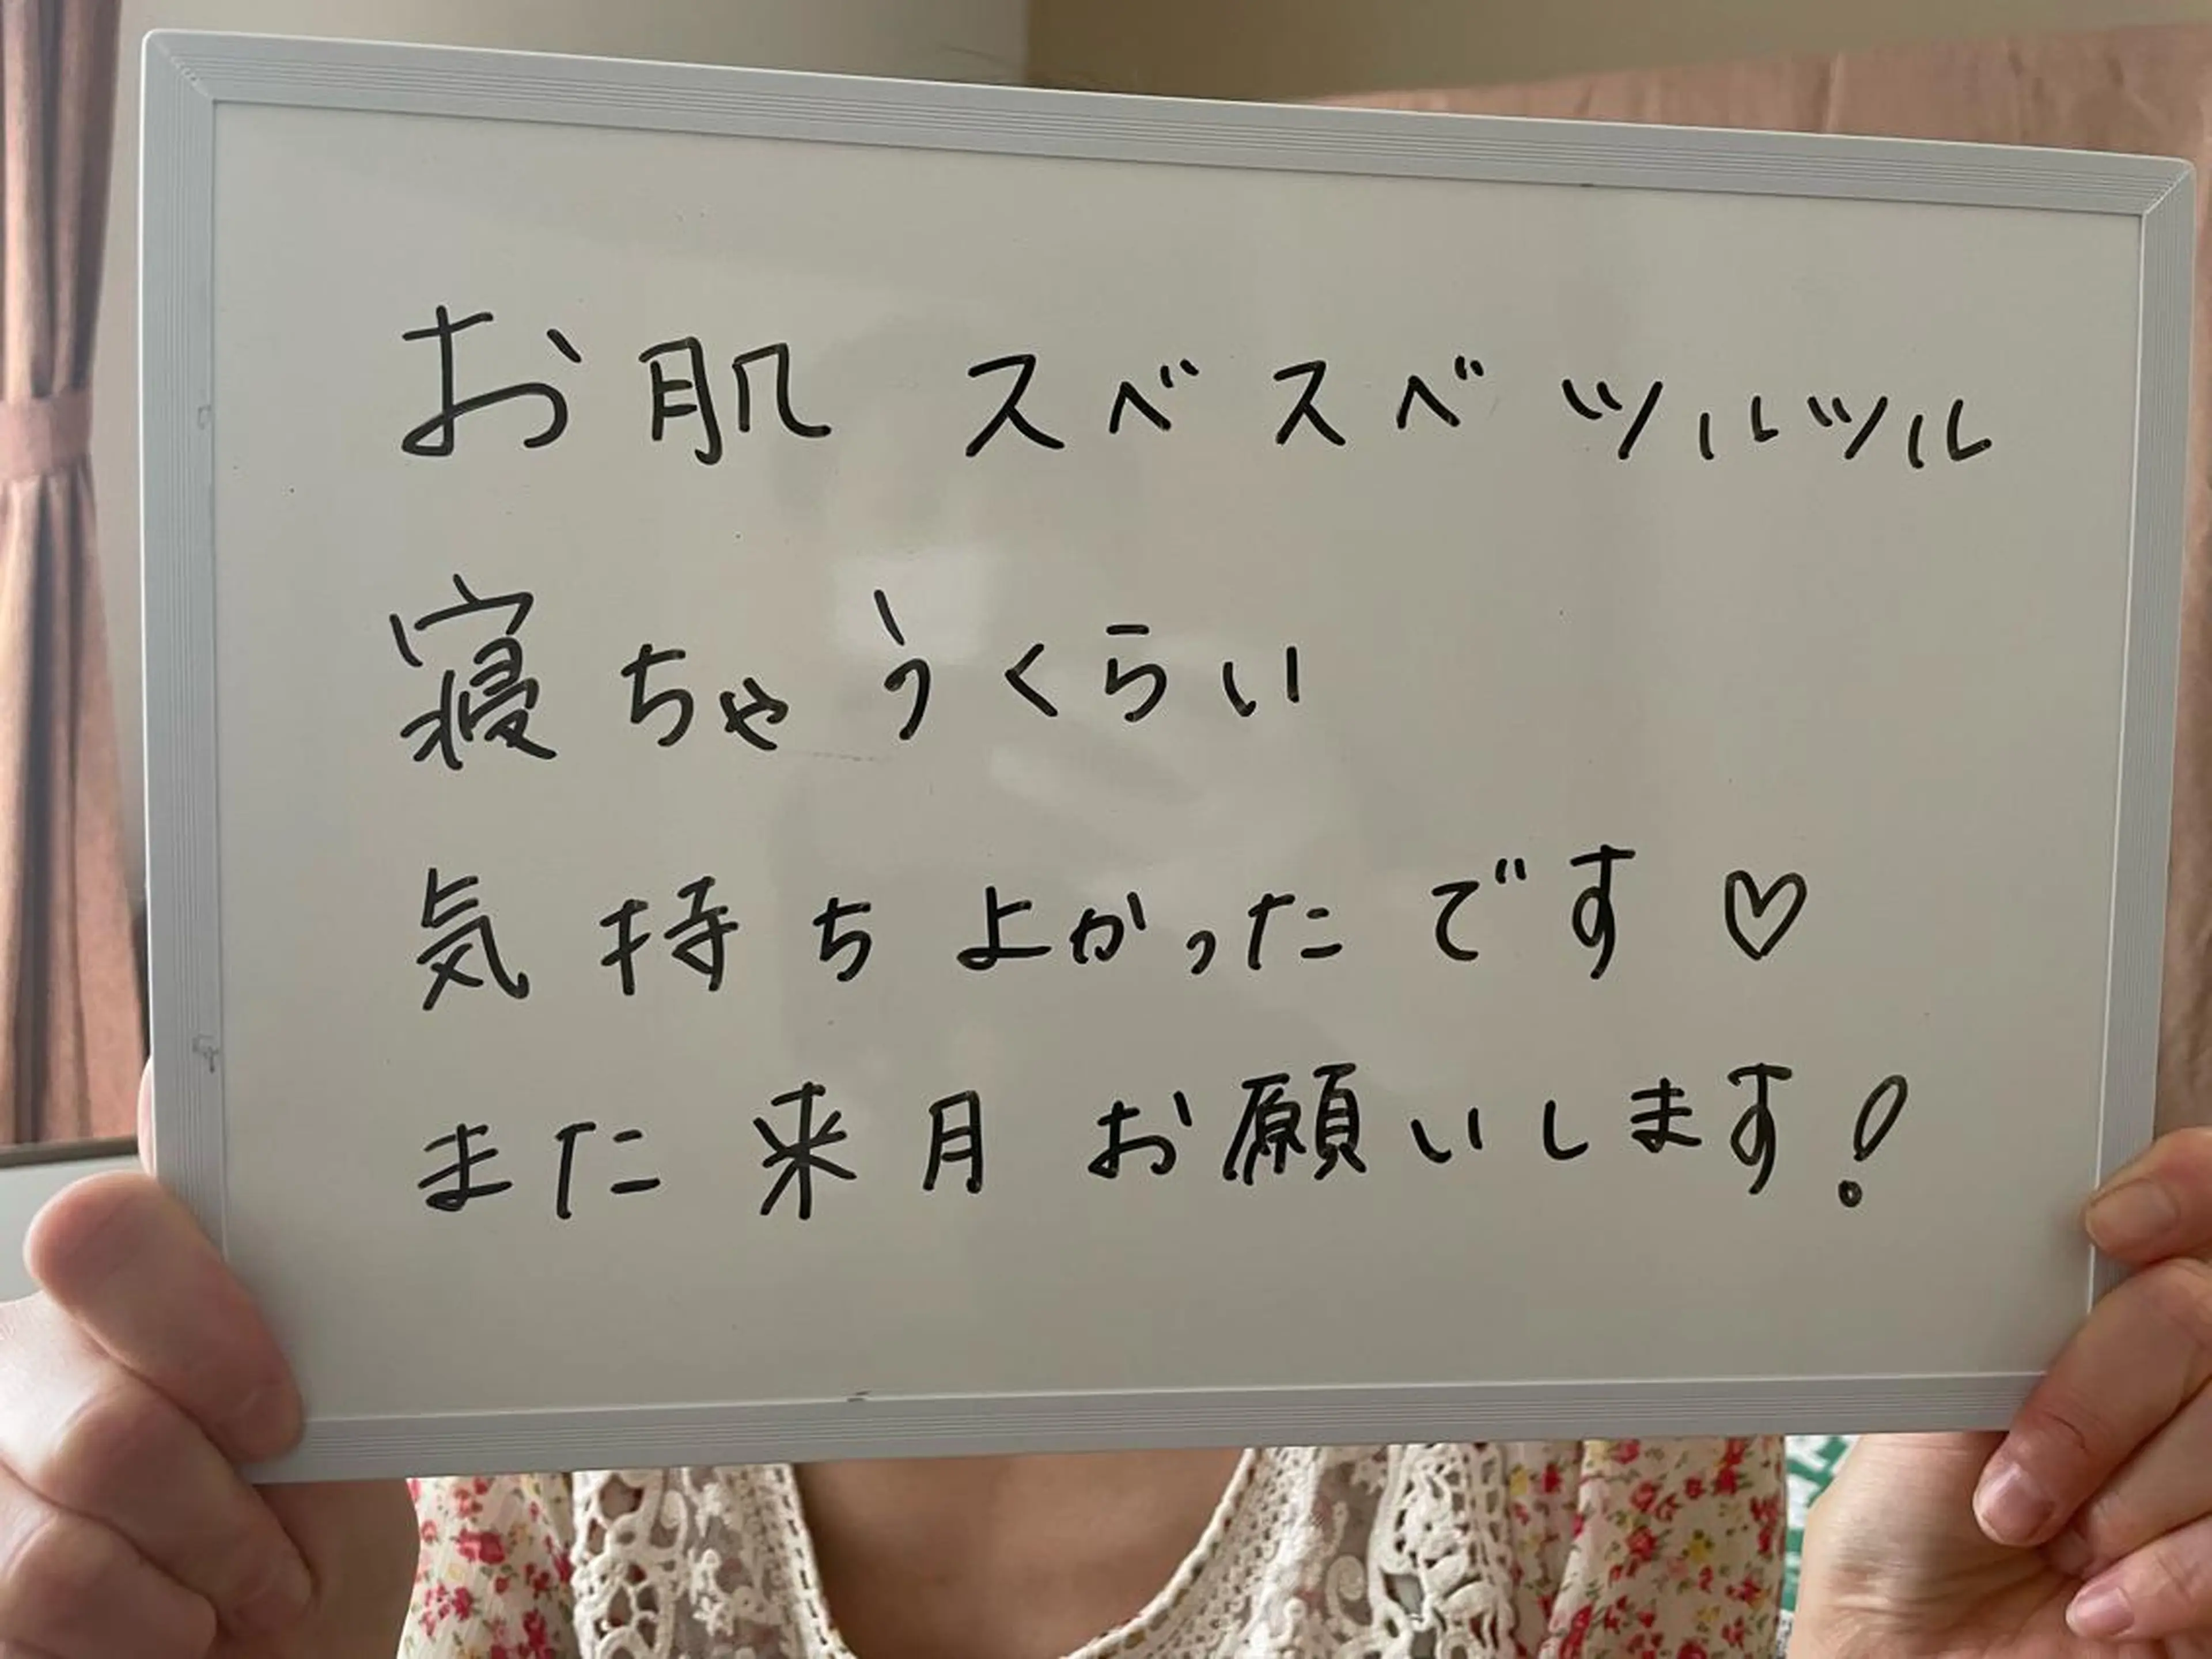 お肌 スベスベ ツルツル
寝ちゃうくらい
気持ち よかったです♡
また 来月 お願いします!